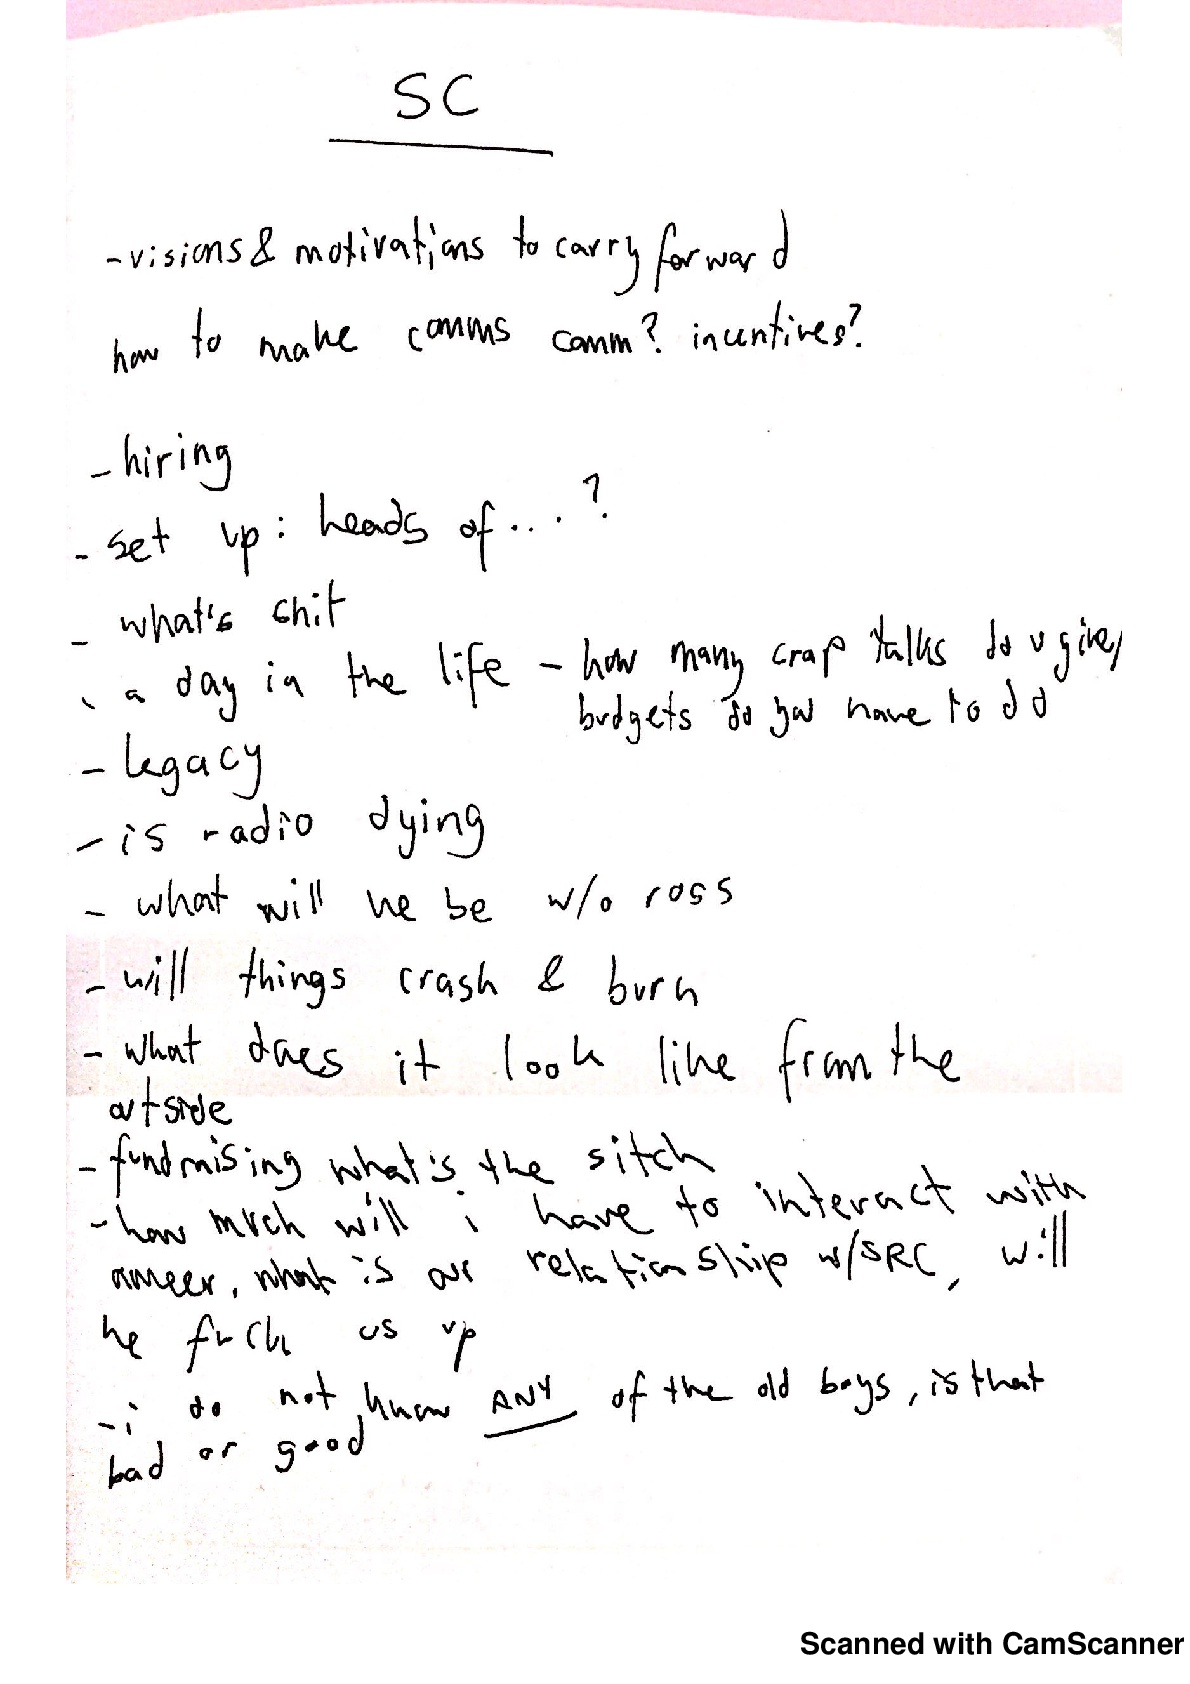 SC
- visions & motivations to carry forward
how to make comms comm? incentives?
- hiring
- set up: heads of ... ?
- what's shit
- a day in the life - how many crap talks do u give,
budgets do you have to do
- legacy
- is radio dying
- what will we be w/o ross
- will things crash & burn
- what does it look like from the
outside
- fundraising what's the sitch
- how much will i have to interact with
ameer, what is our relationship w/SRC, will
he fuck us up
- i do not know ANY of the old boys, is that
bad or good
Scanned with CamScanner